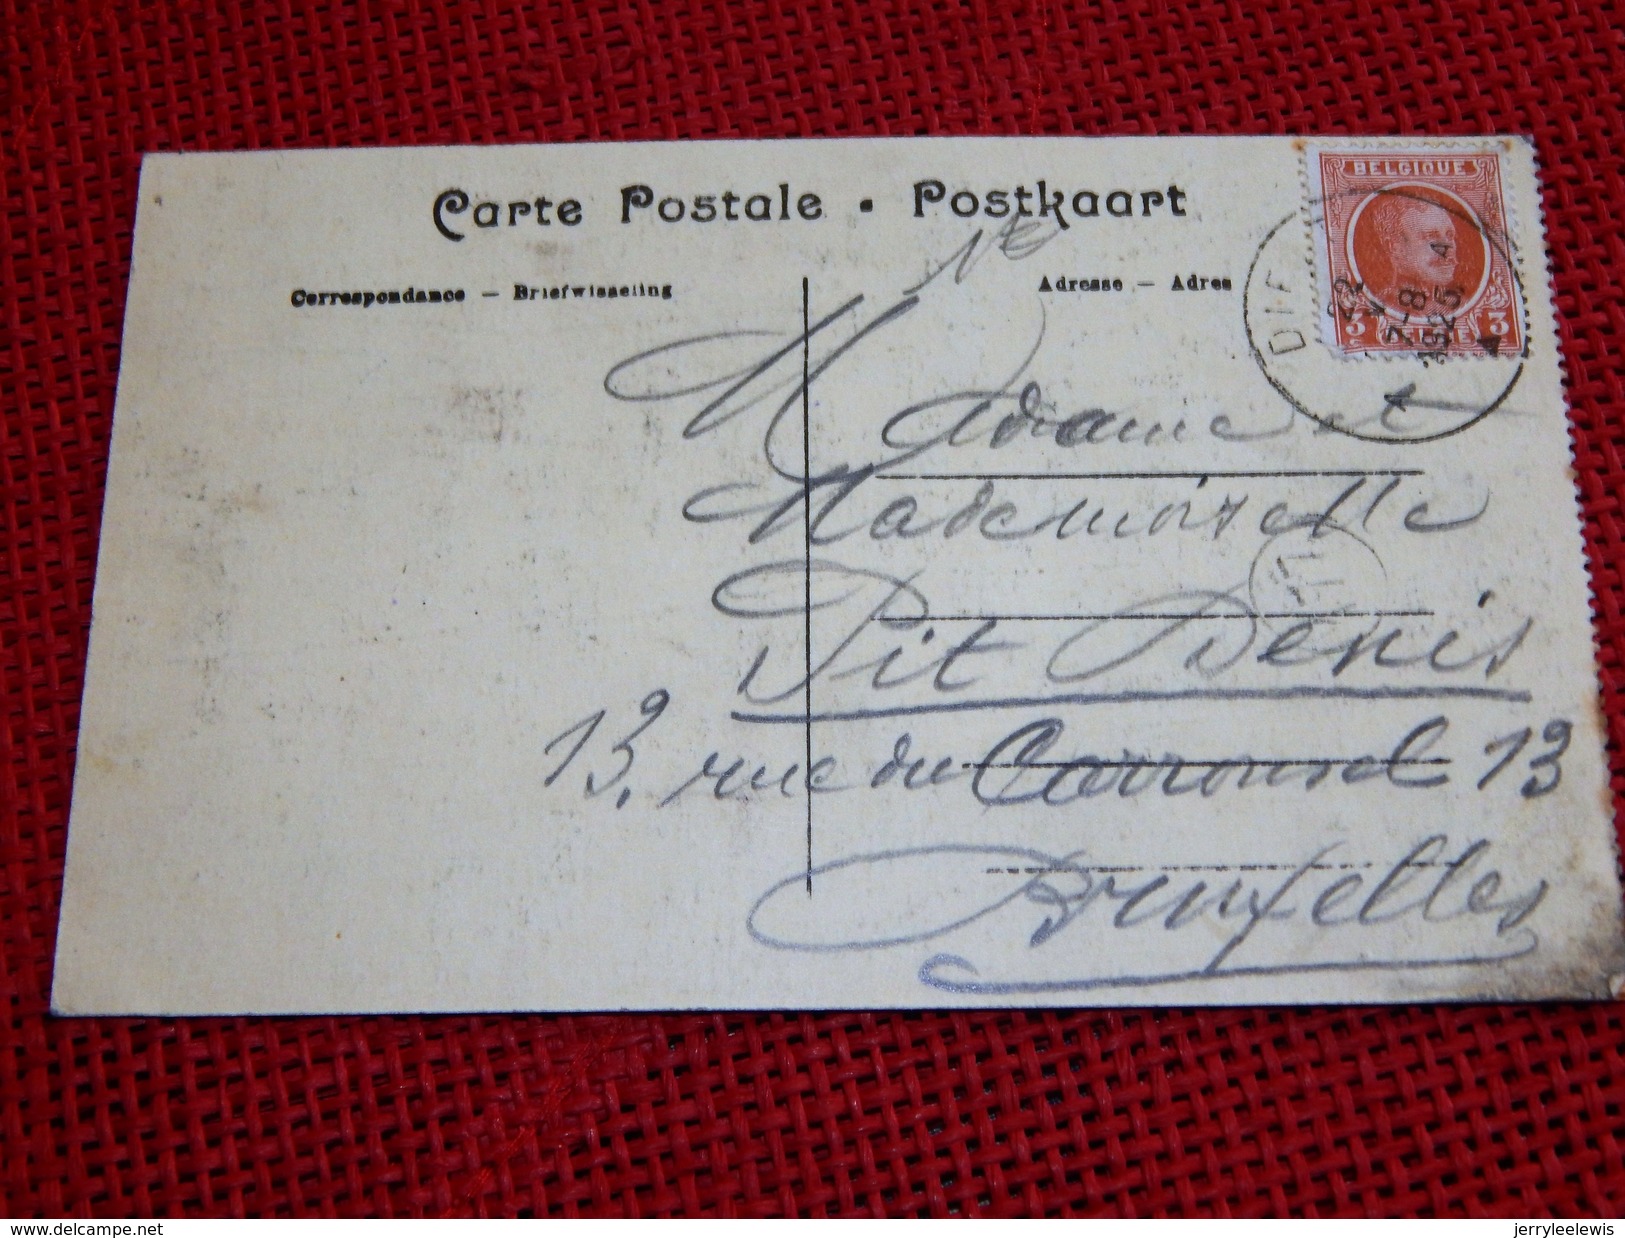 Carte Postale • Postkaart
Correspondance — Briefwisseling
Adresse — Adres
BELGIQUE
3 3
22
7-8
1925
Madame et
Mademoiselle
Pit Denis
13, rue du Carrousel 13
Bruxelles
delcampe.net
jerryleelewis